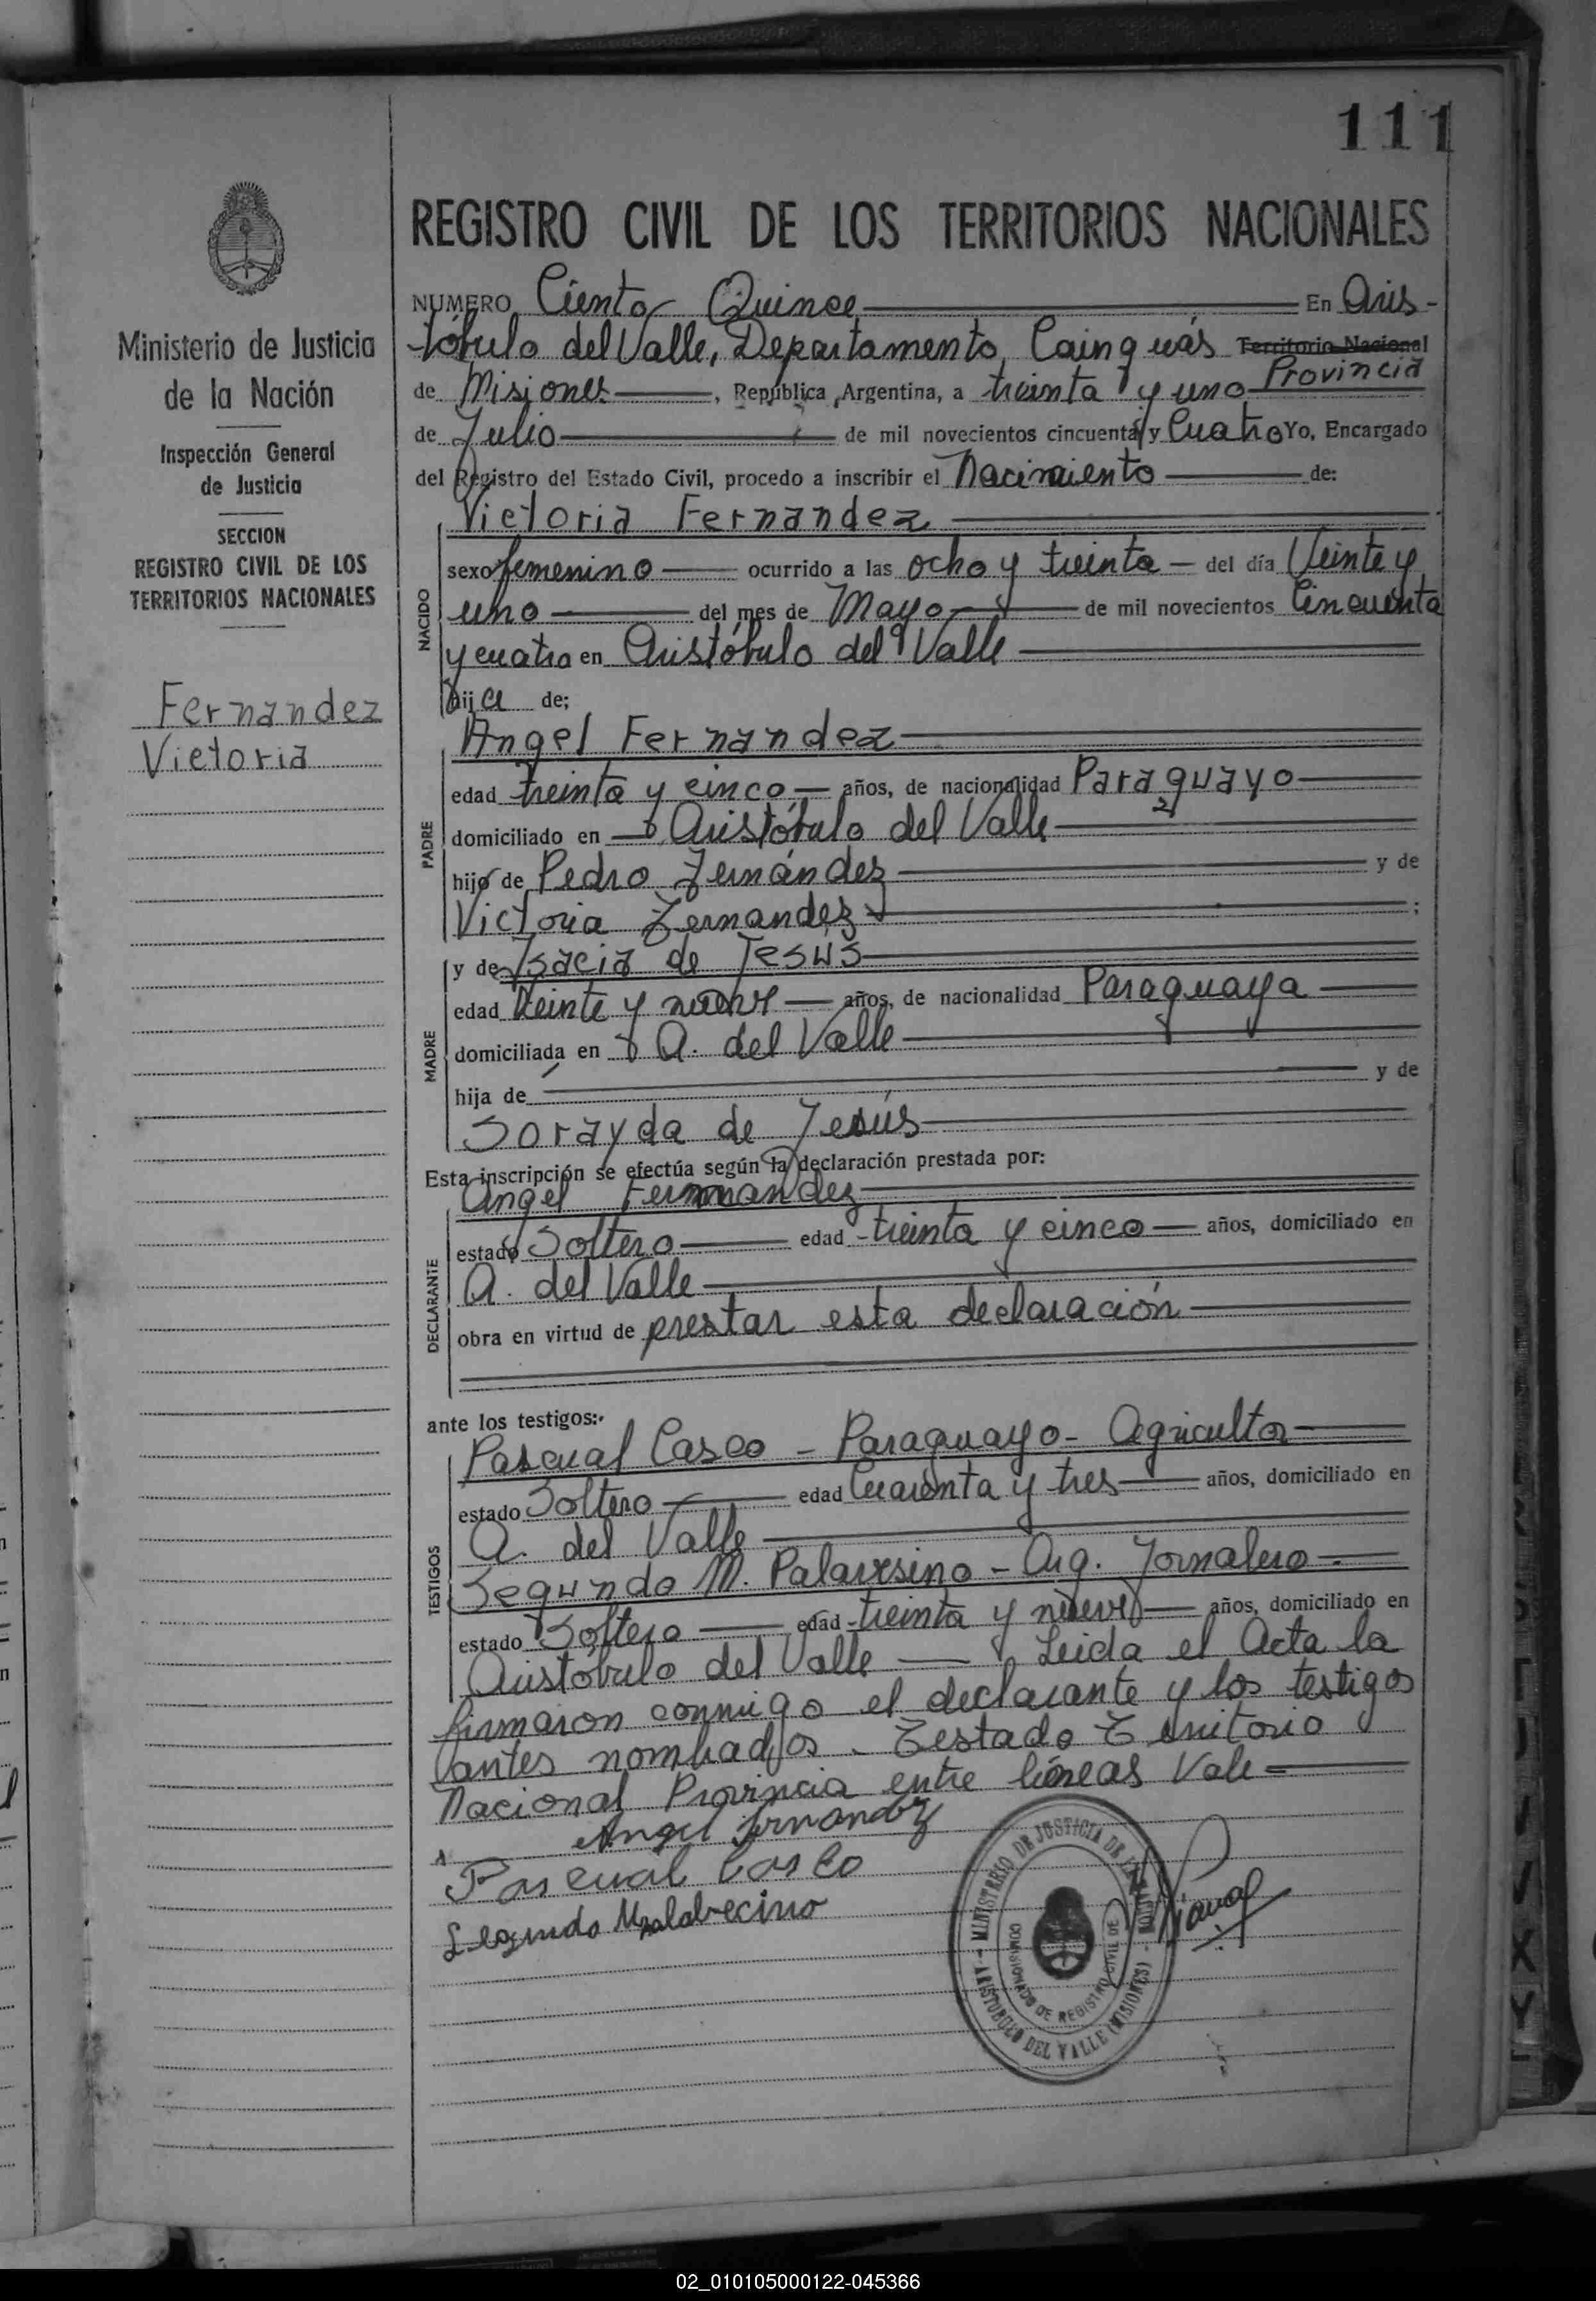 111
REGISTRO CIVIL DE LOS TERRITORIOS NACIONALES
Ministerio de Justicia
de la Nación
Inspección General
de Justicia
SECCION
REGISTRO CIVIL DE LOS
TERRITORIOS NACIONALES
Fernandez
Victoria
NUMERO Ciento Quince En Aris-
tóbulo del Valle, Departamento Cainguás Territorio Nacional
Provincia
de Misiones, República Argentina, a treinta y uno
de Julio de mil novecientos cincuenta y Cuatro Yo, Encargado
del Registro del Estado Civil, procedo a inscribir el Nacimiento de:
NACIDO
Victoria Fernandez
sexo femenino ocurrido a las ocho y treinta del día Veinte y
uno del mes de Mayo de mil novecientos Cincuenta
y cuatro en Aristóbulo del Valle
hija de;
PADRE
Angel Fernandez
edad treinta y cinco años, de nacionalidad Paraguayo
domiciliado en Aristóbulo del Valle
hijo de Pedro Fernández y de
Victoria Fernandez;
MADRE
y de Isacia de Jesús
edad Veinte y nueve años, de nacionalidad Paraguaya
domiciliada en A. del Valle
hija de y de
Sorayda de Jesús
Esta inscripción se efectúa según la declaración prestada por:
DECLARANTE
Angel Fernandez
estado Soltero edad treinta y cinco años, domiciliado en
A. del Valle
obra en virtud de prestar esta declaración
ante los testigos:
TESTIGOS
Pascual Casco - Paraguayo - Agricultor
estado Soltero edad Cuarenta y tres años, domiciliado en
A. del Valle
Segundo M. Palavesino - Arg. Jornalero
estado Soltero edad treinta y nueve años, domiciliado en
Aristóbulo del Valle Leida el Acta la
firmaron conmigo el declarante y los testigos
antes nombrados. Testado Territorio
Nacional Provincia entre líneas Vale
Angel Fernandez
Pascual Casco
Segundo Malabecino
MINISTERIO DE JUSTICIA DE LA NACION
COMISIONADO DE REGISTRO CIVIL DE
ARISTOBULO DEL VALLE (MISIONES)
02_010105000122-045366